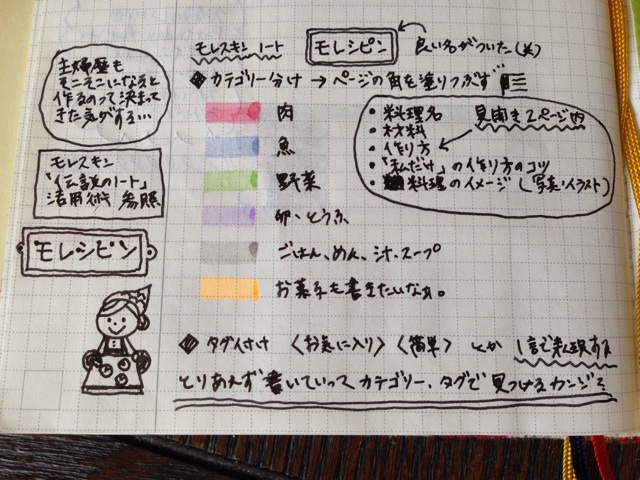 主婦歴も
そこそこになると
作るのって決まって
きた気がする…
モレスキン
「伝説のノート」
活用術 参照
モレシピン
モレスキン ノート
モレシピン
良い名がついた(笑)
◆カテゴリー分け→ページの角を塗りつぶす
肉
魚
野菜
卵、とうふ
ごはん、めん、汁、スープ
お菓子も書きたいなぁ。
・料理名
見開き2ページ内
・材料
・作り方
・「私だけ」の作り方のコツ
・料理のイメージ(写真・イラスト)
◆タグ付け 〈お気に入り〉〈簡単〉とか 1言で表現する
とりあえず書いていってカテゴリー、タグで見つけるカンジで